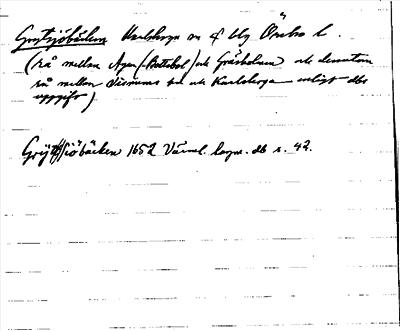 Grytsjöbäcken Karlskoga sn
(rå mellan Agen (-Bottebol) och Gråsholmen och dessutom
rå mellan och Karlskoga enligt dbs
uppgift)
Grytsjiöbäcken 1652 Värml. lagm. db s. 42.